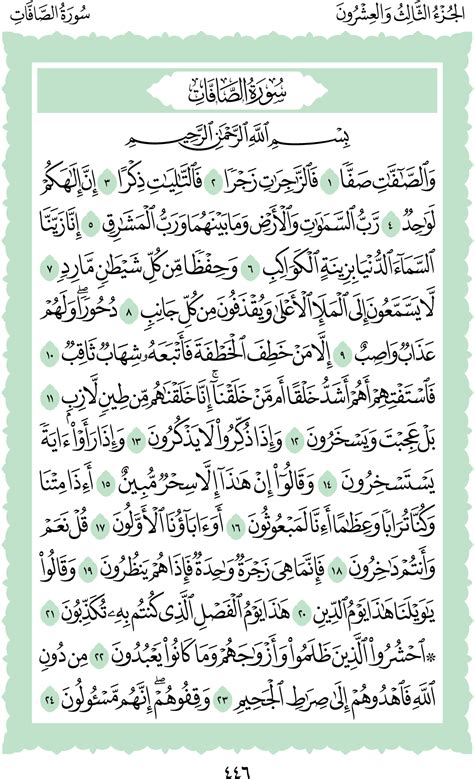 الجُزْءُ الثَّالِثُ وَالعِشْرُونَ
سُورَةُ الصَّافَّاتِ
سُورَةُ الصَّافَّاتِ
بِسْمِ اللَّهِ الرَّحْمَٰنِ الرَّحِيمِ
وَالصَّٰٓفَّٰتِ صَفّٗا ١ فَالزَّٰجِرَٰتِ زَجۡرٗا ٢ فَالتَّٰلِيَٰتِ ذِكۡرًا ٣ إِنَّ إِلَٰهَكُمۡ
لَوَٰحِدٞ ٤ رَّبُّ السَّمَٰوَٰتِ وَالۡأَرۡضِ وَمَا بَيۡنَهُمَا وَرَبُّ الۡمَشَٰرِقِ ٥ إِنَّا زَيَّنَّا
السَّمَآءَ الدُّنۡيَا بِزِينَةٍ الۡكَوَاكِبِ ٦ وَحِفۡظٗا مِّن كُلِّ شَيۡطَٰنٖ مَّارِدٖ ٧
لَّا يَسَّمَّعُونَ إِلَى الۡمَلَإِ الۡأَعۡلَىٰ وَيُقۡذَفُونَ مِن كُلِّ جَانِبٖ ٨ دُحُورٗاۖ وَلَهُمۡ
عَذَابٞ وَاصِبٌ ٩ إِلَّا مَنۡ خَطِفَ الۡخَطۡفَةَ فَأَتۡبَعَهُۥ شِهَابٞ ثَاقِبٞ ١٠
فَاسۡتَفۡتِهِمۡ أَهُمۡ أَشَدُّ خَلۡقًا أَم مَّنۡ خَلَقۡنَآۚ إِنَّا خَلَقۡنَٰهُم مِّن طِينٖ لَّازِبِۭ ١١
بَلۡ عَجِبۡتَ وَيَسۡخَرُونَ ١٢ وَإِذَا ذُكِّرُواْ لَا يَذۡكُرُونَ ١٣ وَإِذَا رَأَوۡاْ ءَايَةٗ
يَسۡتَسۡخِرُونَ ١٤ وَقَالُوٓاْ إِنۡ هَٰذَآ إِلَّا سِحۡرٞ مُّبِينٌ ١٥ أَءِذَا مِتۡنَا
وَكُنَّا تُرَابٗا وَعِظَٰمًا أَءِنَّا لَمَبۡعُوثُونَ ١٦ أَوَءَابَآؤُنَا الۡأَوَّلُونَ ١٧ قُلۡ نَعَمۡ
وَأَنتُمۡ دَٰخِرُونَ ١٨ فَإِنَّمَا هِيَ زَجۡرَةٞ وَٰحِدَةٞ فَإِذَا هُمۡ يَنظُرُونَ ١٩ وَقَالُواْ
يَٰوَيۡلَنَا هَٰذَا يَوۡمُ الدِّينِ ٢٠ هَٰذَا يَوۡمُ الۡفَصۡلِ الَّذِي كُنتُم بِهِۦ تُكَذِّبُونَ ٢١
۞ احۡشُرُواْ الَّذِينَ ظَلَمُواْ وَأَزۡوَٰجَهُمۡ وَمَا كَانُواْ يَعۡبُدُونَ ٢٢ مِن دُونِ
اللَّهِ فَاهۡدُوهُمۡ إِلَىٰ صِرَٰطِ الۡجَحِيمِ ٢٣ وَقِفُوهُمۡۖ إِنَّهُم مَّسۡـُٔولُونَ ٢٤
٤٤٦